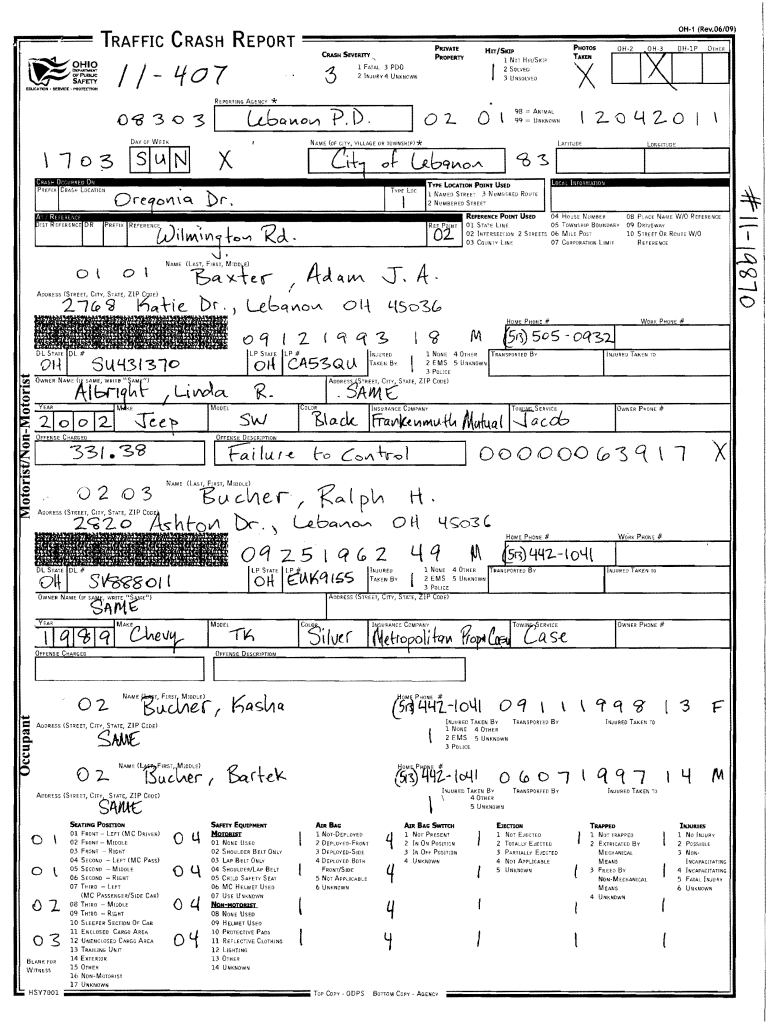 OH-1 (Rev.06/09)
TRAFFIC CRASH REPORT
OHIO DEPARTMENT OF PUBLIC SAFETY
EDUCATION • SERVICE • PROTECTION
11-407
CRASH SEVERITY
3
1 FATAL 3 PDO
2 INJURY 4 UNKNOWN
PRIVATE PROPERTY
HIT/SKIP
1
1 NOT HIT/SKIP
2 SOLVED
3 UNSOLVED
PHOTOS TAKEN
X
OH-2 OH-3 OH-1P OTHER
X
08303
REPORTING AGENCY *
Lebanon P.D.
02 01
98 = ANIMAL
99 = UNKNOWN
12042011
1703
DAY OF WEEK
SUN
X
NAME (OF CITY, VILLAGE OR TOWNSHIP) *
City of Lebanon
83
LATITUDE
LONGITUDE
CRASH OCCURRED ON
PREFIX CRASH LOCATION
Oregonia Dr.
TYPE LOC
1
TYPE LOCATION POINT USED
1 NAMED STREET 3 NUMBERED ROUTE
2 NUMBERED STREET
LOCAL INFORMATION
#11-19870
AT / REFERENCE
DIST REFERENCE DR PREFIX REFERENCE
Wilmington Rd.
REF POINT
02
REFERENCE POINT USED
01 STATE LINE
02 INTERSECTION 2 STREETS
03 COUNTY LINE
04 HOUSE NUMBER
05 TOWNSHIP BOUNDARY
06 MILE POST
07 CORPORATION LIMIT
08 PLACE NAME W/O REFERENCE
09 DRIVEWAY
10 STREET OR ROUTE W/O REFERENCE
Motorist/Non-Motorist
01 01
NAME (LAST, FIRST, MIDDLE)
Baxter, Adam J. A.
ADDRESS (STREET, CITY, STATE, ZIP CODE)
2768 Katie Dr., Lebanon OH 45036
09121993 18 M
HOME PHONE #
(513) 505-0932
WORK PHONE #
DL STATE DL #
OH SU431370
LP STATE LP #
OH CA53QU
INJURED TAKEN BY
1
1 NONE 4 OTHER
2 EMS 5 UNKNOWN
3 POLICE
TRANSPORTED BY
INJURED TAKEN TO
OWNER NAME (IF SAME, WRITE "SAME")
Albright, Linda R.
ADDRESS (STREET, CITY, STATE, ZIP CODE)
SAME
YEAR
2002
MAKE
Jeep
MODEL
SW
COLOR
Black
INSURANCE COMPANY
Frankenmuth Mutual
TOWING SERVICE
Jacob
OWNER PHONE #
OFFENSE CHARGED
331.38
OFFENSE DESCRIPTION
Failure to Control
00000063917 X
02 03
NAME (LAST, FIRST, MIDDLE)
Bucher, Ralph H.
ADDRESS (STREET, CITY, STATE, ZIP CODE)
2820 Ashton Dr., Lebanon OH 45036
09251962 49 M
HOME PHONE #
(513) 442-1041
WORK PHONE #
DL STATE DL #
OH SV888011
LP STATE LP #
OH EUK9155
INJURED TAKEN BY
1
1 NONE 4 OTHER
2 EMS 5 UNKNOWN
3 POLICE
TRANSPORTED BY
INJURED TAKEN TO
OWNER NAME (IF SAME, WRITE "SAME")
SAME
ADDRESS (STREET, CITY, STATE, ZIP CODE)
YEAR
1989
MAKE
Chevy
MODEL
TK
COLOR
Silver
INSURANCE COMPANY
Metropolitan
TOWING SERVICE
Case
OWNER PHONE #
OFFENSE CHARGED
OFFENSE DESCRIPTION
Occupant
02
NAME (LAST, FIRST, MIDDLE)
Bucher, Kasha
HOME PHONE #
(513) 442-1041
09111998 13 F
ADDRESS (STREET, CITY, STATE, ZIP CODE)
SAME
1
INJURED TAKEN BY
1 NONE 4 OTHER
2 EMS 5 UNKNOWN
3 POLICE
TRANSPORTED BY
INJURED TAKEN TO
02
NAME (LAST, FIRST, MIDDLE)
Bucher, Bartek
HOME PHONE #
(513) 442-1041
06071997 14 M
ADDRESS (STREET, CITY, STATE, ZIP CODE)
SAME
1
INJURED TAKEN BY
4 OTHER
5 UNKNOWN
TRANSPORTED BY
INJURED TAKEN TO
01
01
02
03
BLANK FOR WITNESS
SEATING POSITION
01 FRONT - LEFT (MC DRIVER)
02 FRONT - MIDDLE
03 FRONT - RIGHT
04 SECOND - LEFT (MC PASS)
05 SECOND - MIDDLE
06 SECOND - RIGHT
07 THIRD - LEFT
(MC PASSENGER/SIDE CAR)
08 THIRD - MIDDLE
09 THIRD - RIGHT
10 SLEEPER SECTION OF CAB
11 ENCLOSED CARGO AREA
12 UNENCLOSED CARGO AREA
13 TRAILING UNIT
14 EXTERIOR
15 OTHER
16 NON-MOTORIST
17 UNKNOWN
04
04
04
04
SAFETY EQUIPMENT
MOTORIST
01 NONE USED
02 SHOULDER BELT ONLY
03 LAP BELT ONLY
04 SHOULDER/LAP BELT
05 CHILD SAFETY SEAT
06 MC HELMET USED
07 USE UNKNOWN
NON-MOTORIST
08 NONE USED
09 HELMET USED
10 PROTECTIVE PADS
11 REFLECTIVE CLOTHING
12 LIGHTING
13 OTHER
14 UNKNOWN
1
1
1
1
AIR BAG
1 NOT-DEPLOYED
2 DEPLOYED-FRONT
3 DEPLOYED-SIDE
4 DEPLOYED BOTH FRONT/SIDE
5 NOT APPLICABLE
6 UNKNOWN
4
4
4
4
AIR BAG SWITCH
1 NOT PRESENT
2 IN ON POSITION
3 IN OFF POSITION
4 UNKNOWN
1
1
1
1
EJECTION
1 NOT EJECTED
2 TOTALLY EJECTED
3 PARTIALLY EJECTED
4 NOT APPLICABLE
5 UNKNOWN
1
1
1
1
TRAPPED
1 NOT TRAPPED
2 EXTRICATED BY MECHANICAL MEANS
3 FREED BY NON-MECHANICAL MEANS
4 UNKNOWN
1
1
1
1
INJURIES
1 NO INJURY
2 POSSIBLE
3 NON-INCAPACITATING
4 INCAPACITATING
5 FATAL INJURY
6 UNKNOWN
HSY7001
TOP COPY - ODPS BOTTOM COPY - AGENCY